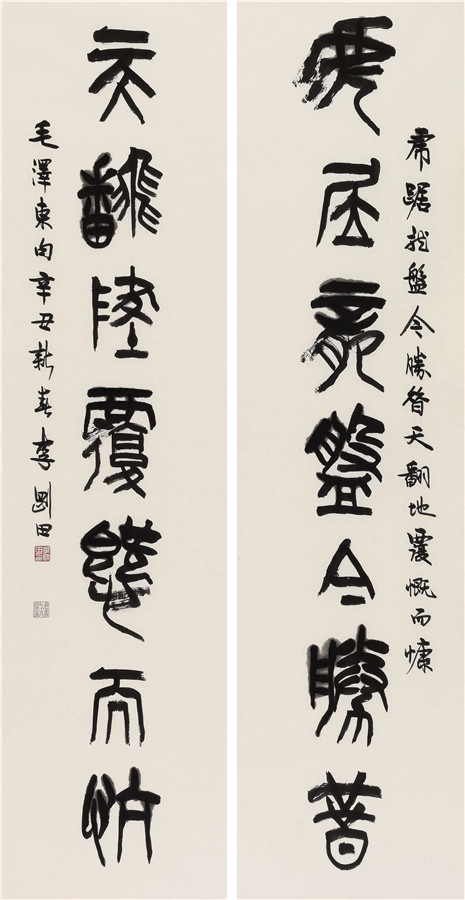 虎踞龍盤今勝昔天翻地覆慨而慷
虎居龍盤今勝昔
天飜墬覆慨而忼
毛澤東句辛丑新春李剛田